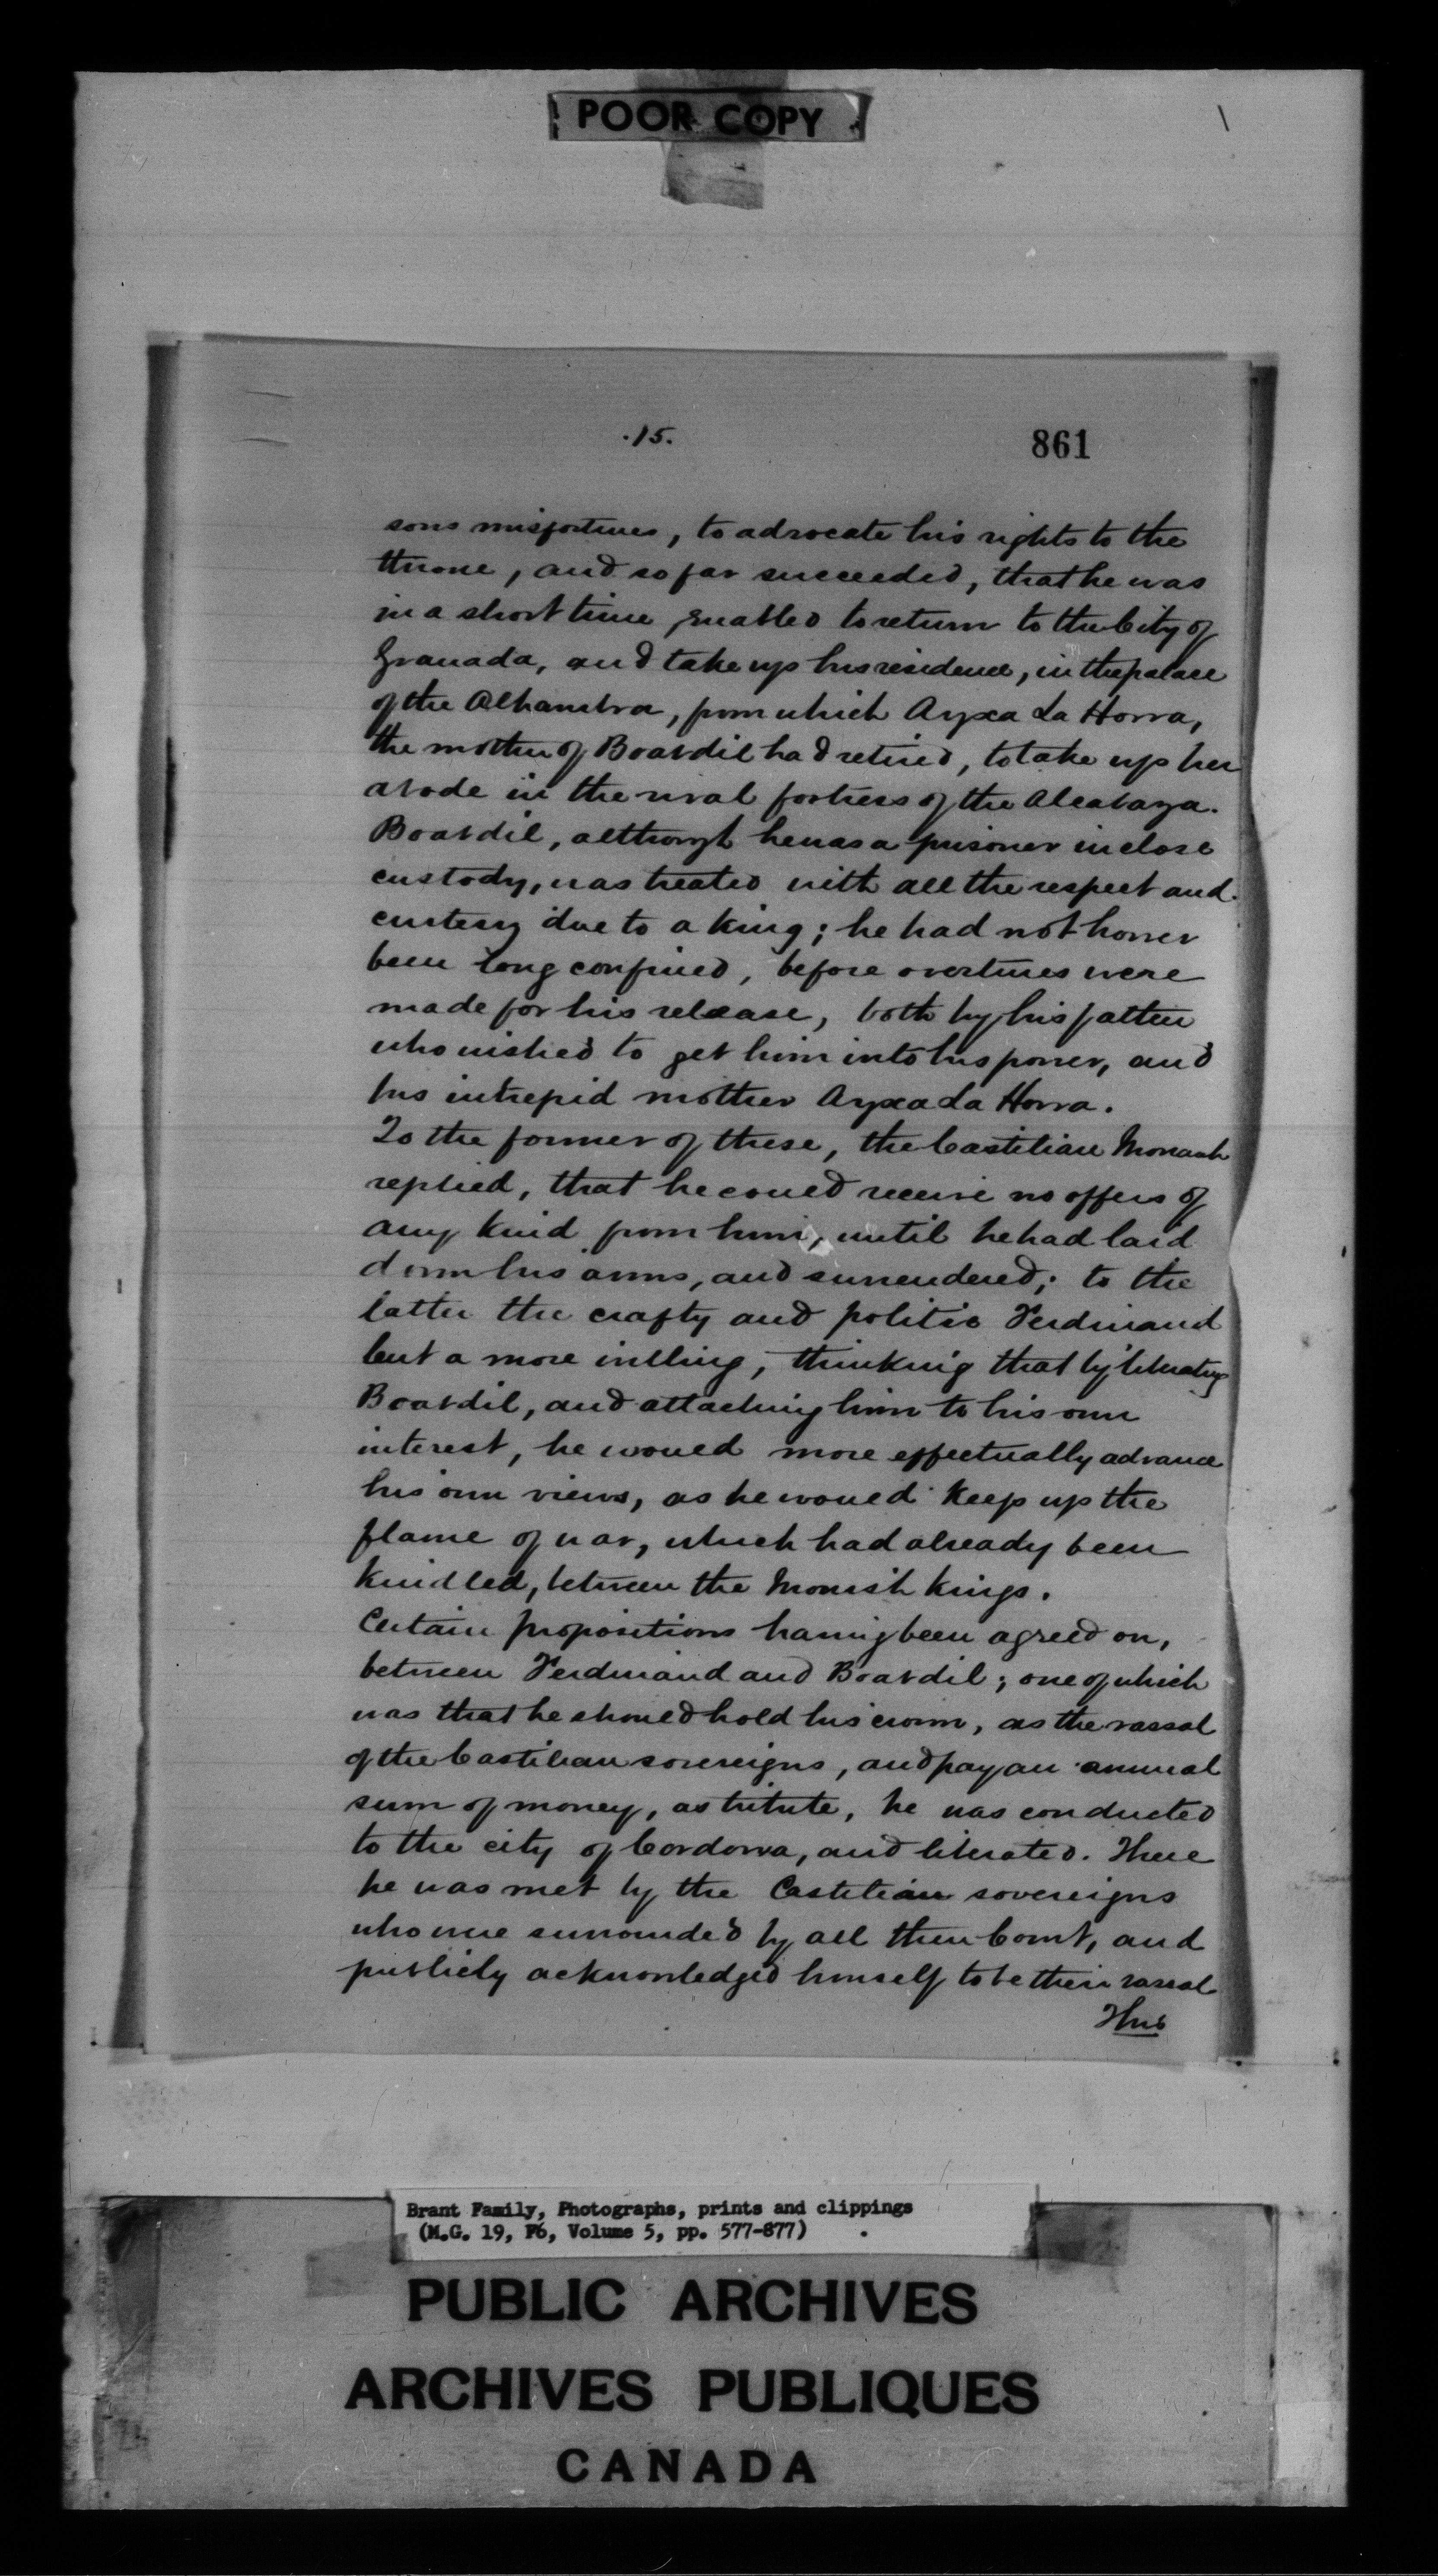 POOR COPY
.15.
861
sons misfortunes, to advocate his rights to the
throne, and so far succeeded, that he was
in a short time enabled to return to the City of
Granada, and take up his residence, in the palace
of the Alhambra, from which Ayxa La Horra,
the mother of Boabdil had retired, to take up her
abode in the rival fortress of the Alcabaza.
Boabdil, although he was a prisoner in close
custody, was treated with all the respect and
curtesy due to a king; he had not however
been long confined, before overtures were
made for his release, both by his father
who wished to get him into his power, and
his intrepid mother Ayxa La Horra.
To the former of these, the Castilian Monarch
replied, that he could receive no offers of
any kind from him, until he had laid
down his arms, and surrendered; to the
latter the crafty and politic Ferdinand
lent a more willing, thinking that by liberating
Boabdil, and attaching him to his own
interest, he would more effectually advance
his own views, as he would keep up the
flame of war, which had already been
kindled, between the Moorish kings.
Certain propositions having been agreed on,
between Ferdinand and Boabdil; one of which
was that he should hold his crown, as the vassal
of the Castilian sovereigns, and pay an annual
sum of money, as tribute, he was conducted
to the city of Cordova, and liberated. There
he was met by the Castilian sovereigns
who were surrounded by all their Court, and
publicly acknowledged himself to be their vassal
Thus
Brant Family, Photographs, prints and clippings
(M.G. 19, F6, Volume 5, pp. 577-877)
PUBLIC ARCHIVES
ARCHIVES PUBLIQUES
CANADA